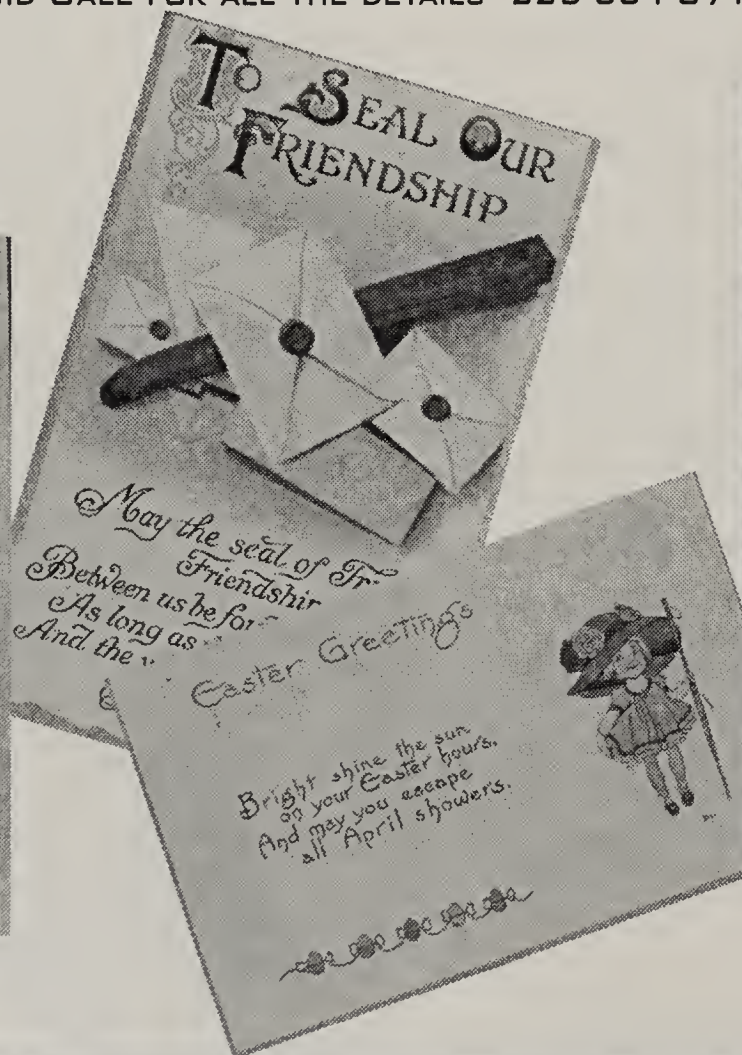 CALL FOR ALL THE DETAILS
TO SEAL OUR
FRIENDSHIP
May the seal of
Friendship
Between us be
As long as
And the
Easter Greetings
Bright shine the sun
on your Easter hours,
And may you escape
all April showers.